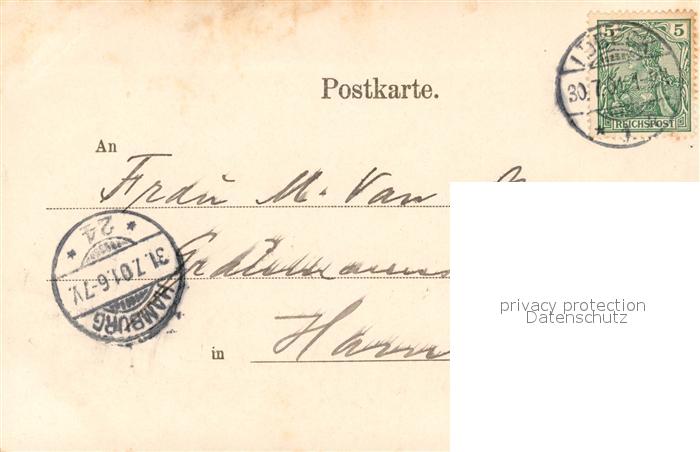 5 5
REICHSPOST
30.7.01
Postkarte.
An
Frau M. Van
24
31.7.01.6-7V.
HAMBURG
in
privacy protection
Datenschutz